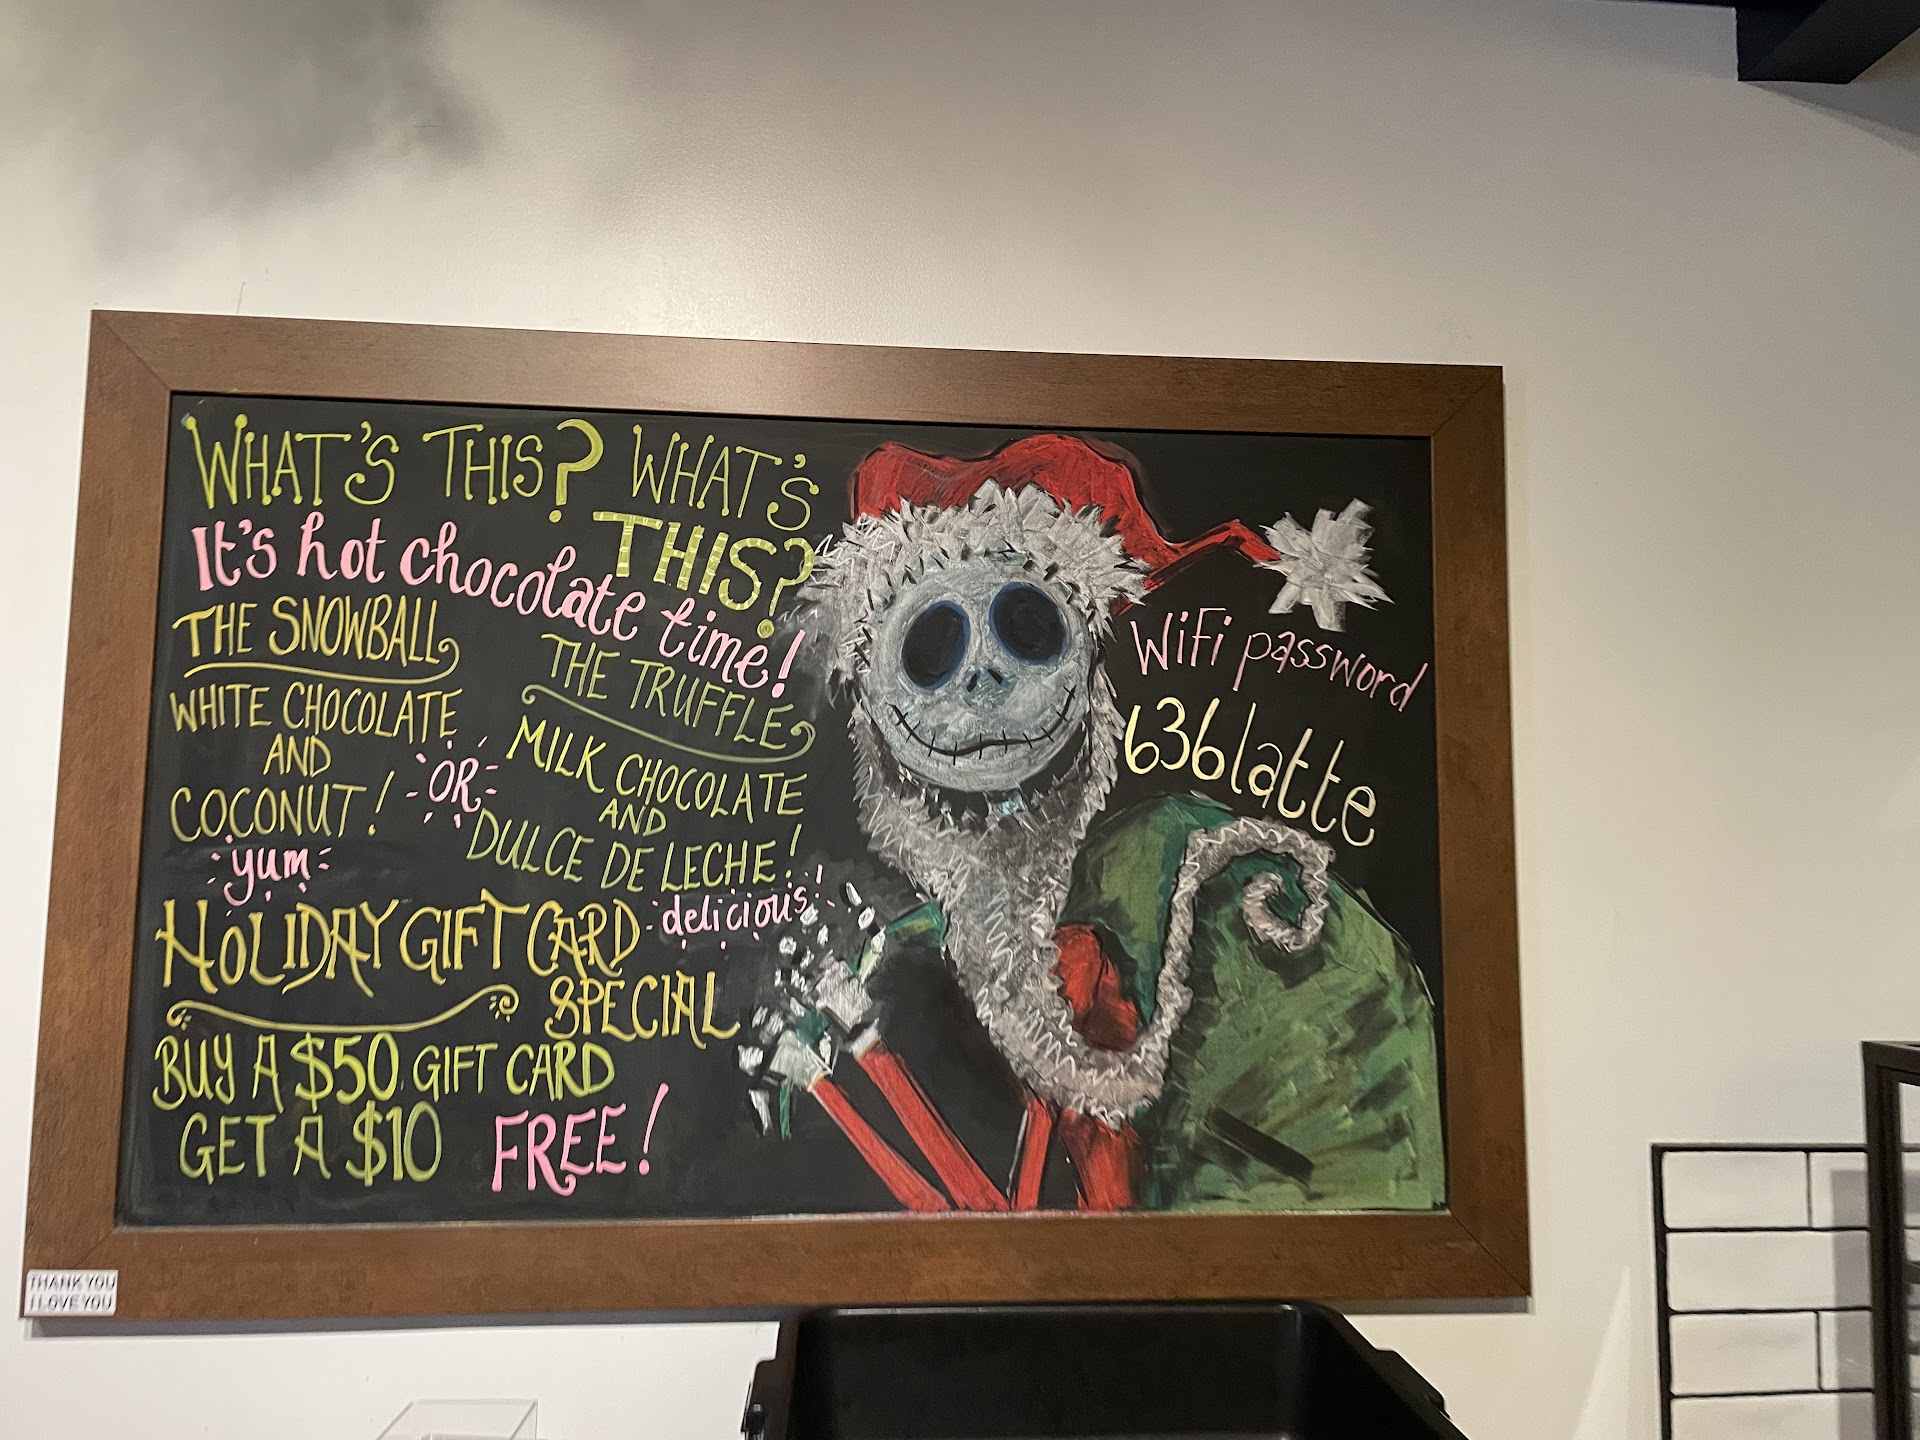 WHAT'S THIS? WHAT'S
THIS?
It's hot chocolate time!
THE SNOWBALL
WHITE CHOCOLATE
AND
COCONUT!
yum
OR
THE TRUFFLE
MILK CHOCOLATE
AND
DULCE DE LECHE!
delicious!
HOLIDAY GIFT CARD
SPECIAL
BUY A $50 GIFT CARD
GET A $10 FREE!
WiFi password
636latte
THANK YOU
I LOVE YOU